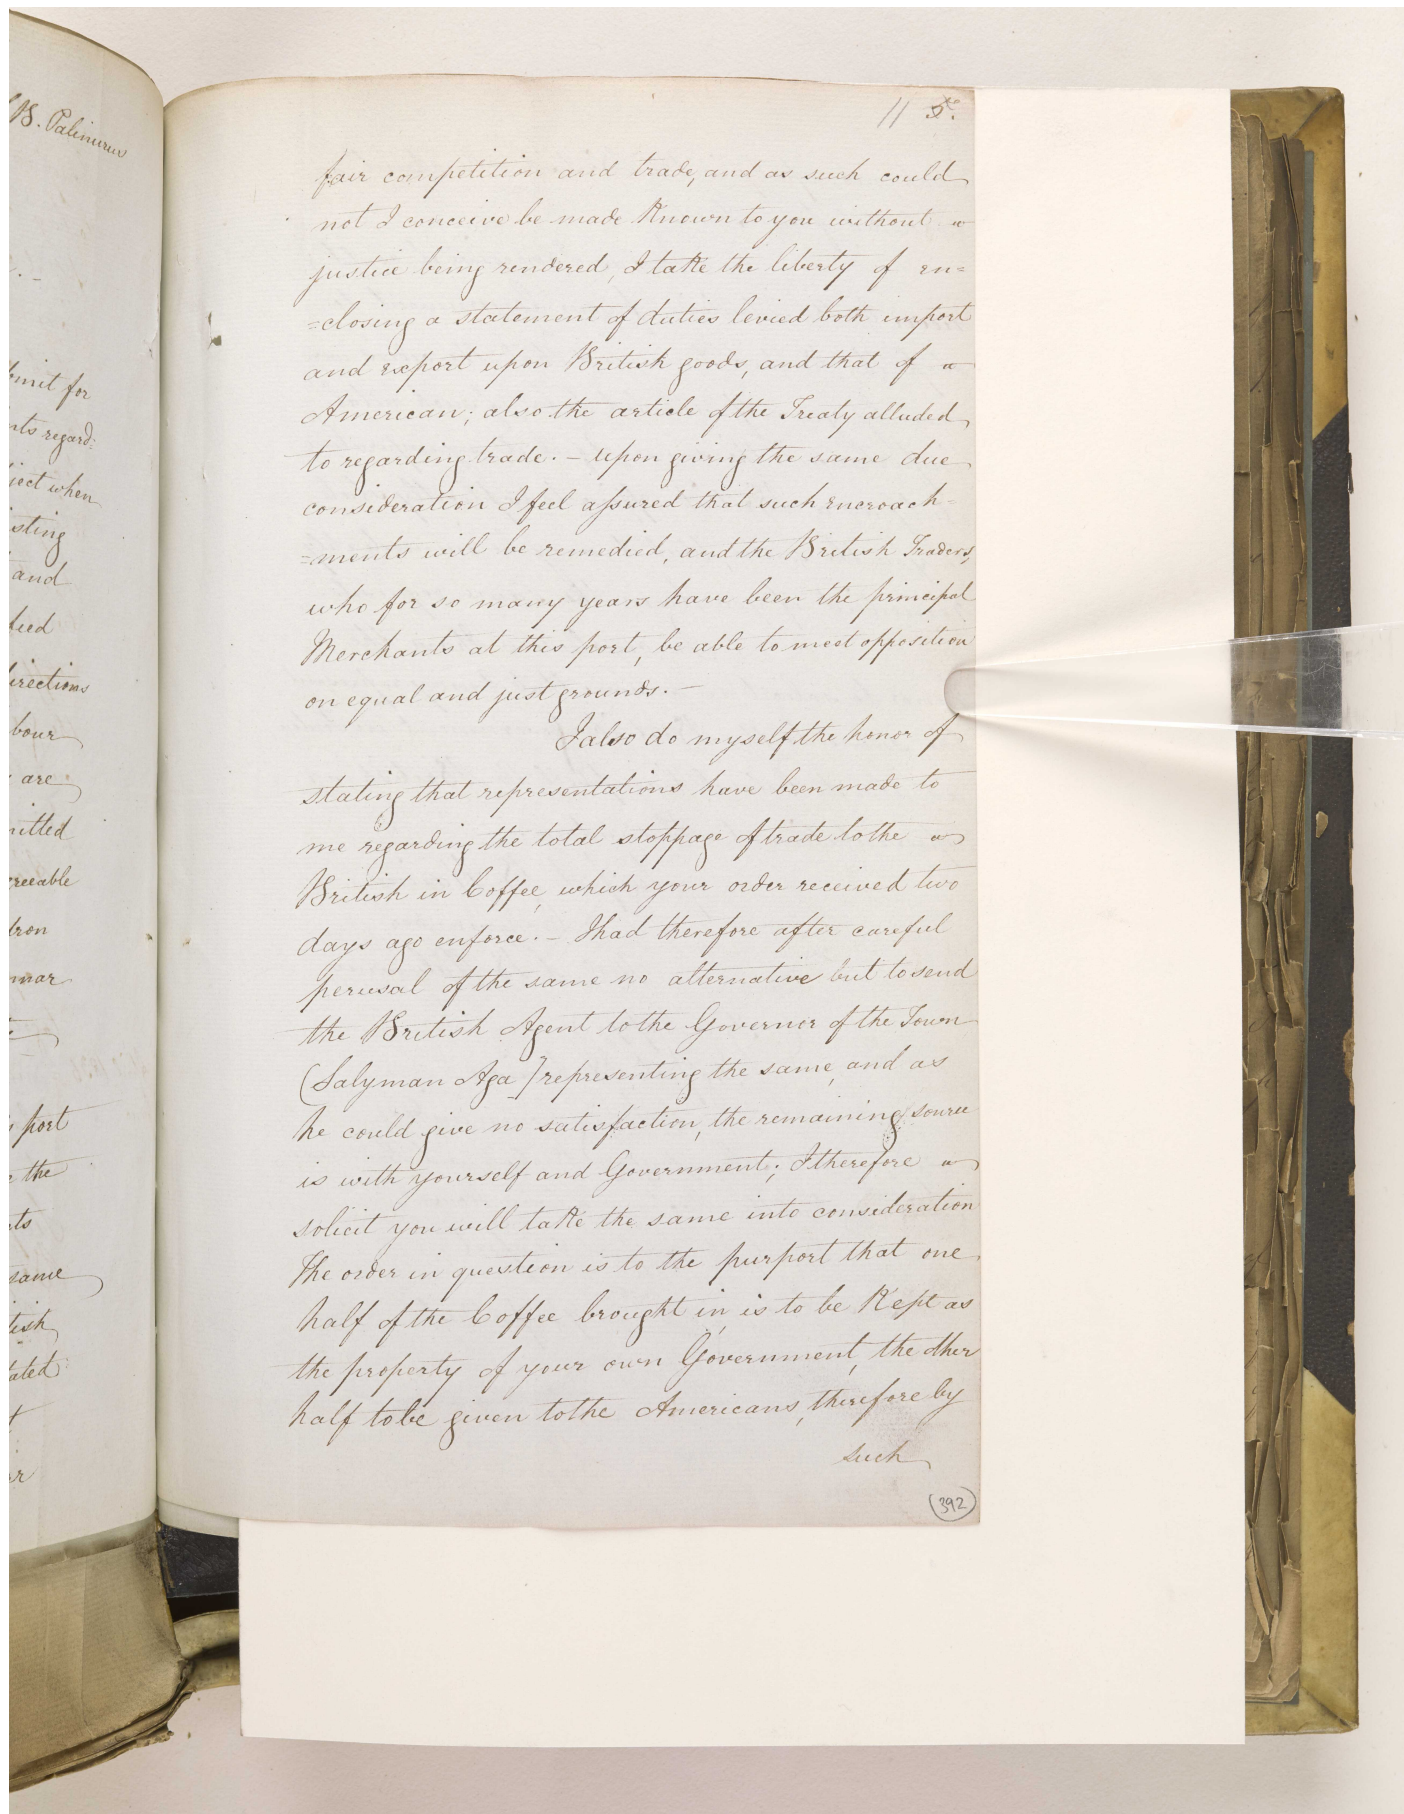 B. Palinurus
mit for
nts regard:
ject when
isting
and
lied
irections
bour
are
nitted
reeable
dron
mar
port
the
nts
same
tish
ated
11 5.
fair competition and trade, and as such could
not I conceive be made Known to you without
justice being rendered, I take the liberty of en=
=closing a statement of duties levied both import
and export upon British goods, and that of
American; also the article of the Treaty alluded
to regarding trade. – upon giving the same due
consideration I feel assured that such encroach-
=ments will be remedied, and the British Traders,
who for so many years have been the principal
Merchants at this port, be able to meet opposition
on equal and just grounds. –
I also do myself the honor of
stating that representations have been made to
me regarding the total stoppage of trade to the
British in Coffee, which your order received two
days ago enforce. – I had therefore after careful
perusal of the same no alternative but to send
the British Agent to the Governor of the Town
(Salyman Aga) representing the same, and as
he could give no satisfaction, the remaining source
is with yourself and Government; I therefore
solicit you will take the same into consideration
The order in question is to the purport that one
half of the Coffee brought in, is to be Kept as
the property of your own Government, the other
half to be given to the Americans, therefore by
such
(392)